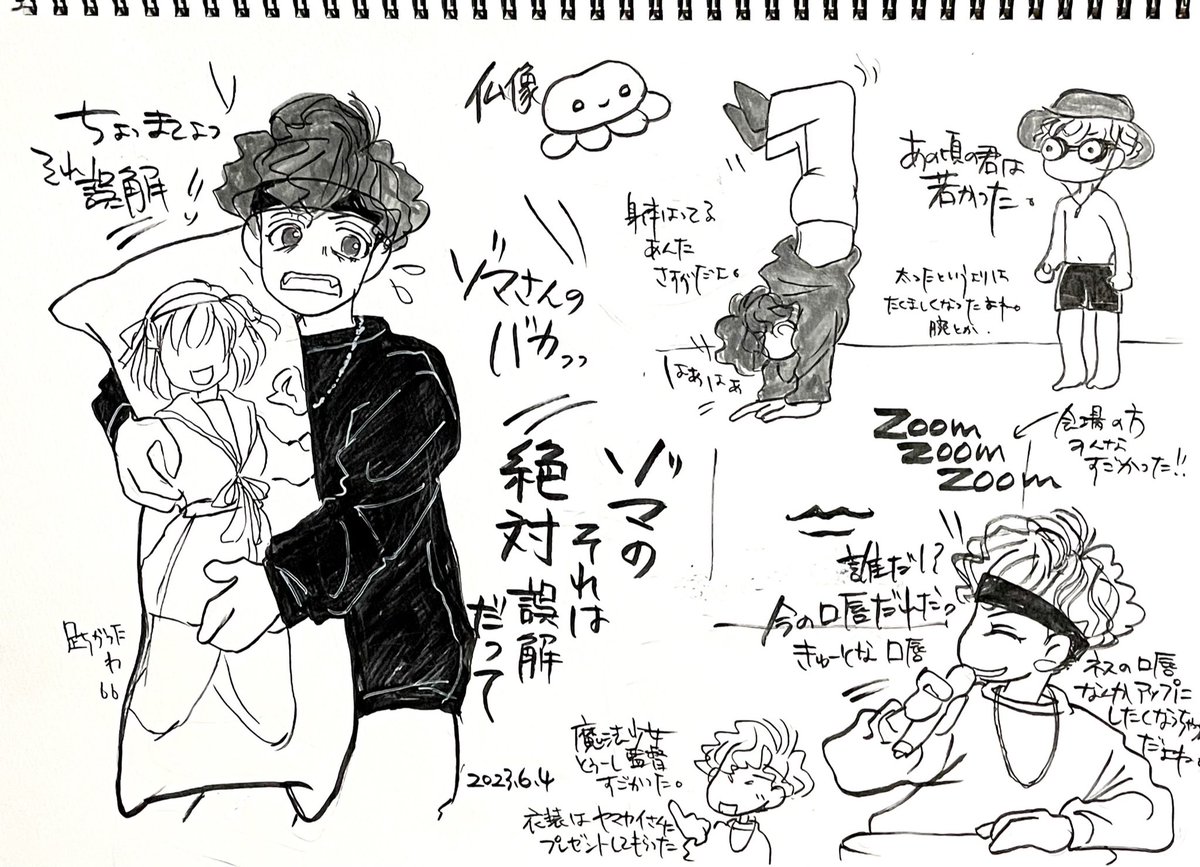 ちょっまてよっ
それ誤解!!
仏像
ゾマさんの
バカっっ
身体はってる
あんた
さすがだよ。
はぁはぁ
あの頃の君は
若かった。
太ったというよりは
たくましくなったよね。
腕とか.
ゾマの
それは
絶対誤解
だって
Zoom
Zoom
Zoom
会場の方
すんな
すごかった!!
誰だ!?
今の口唇だれだ?
きゅーとな口唇
ネスの口唇
なんかアップに
したくなっちゃう
だよね
魔法少女
とぅーし監督
すごかった。
衣装はヤマカイさんに
プレゼントしてもらった
2023.6.4